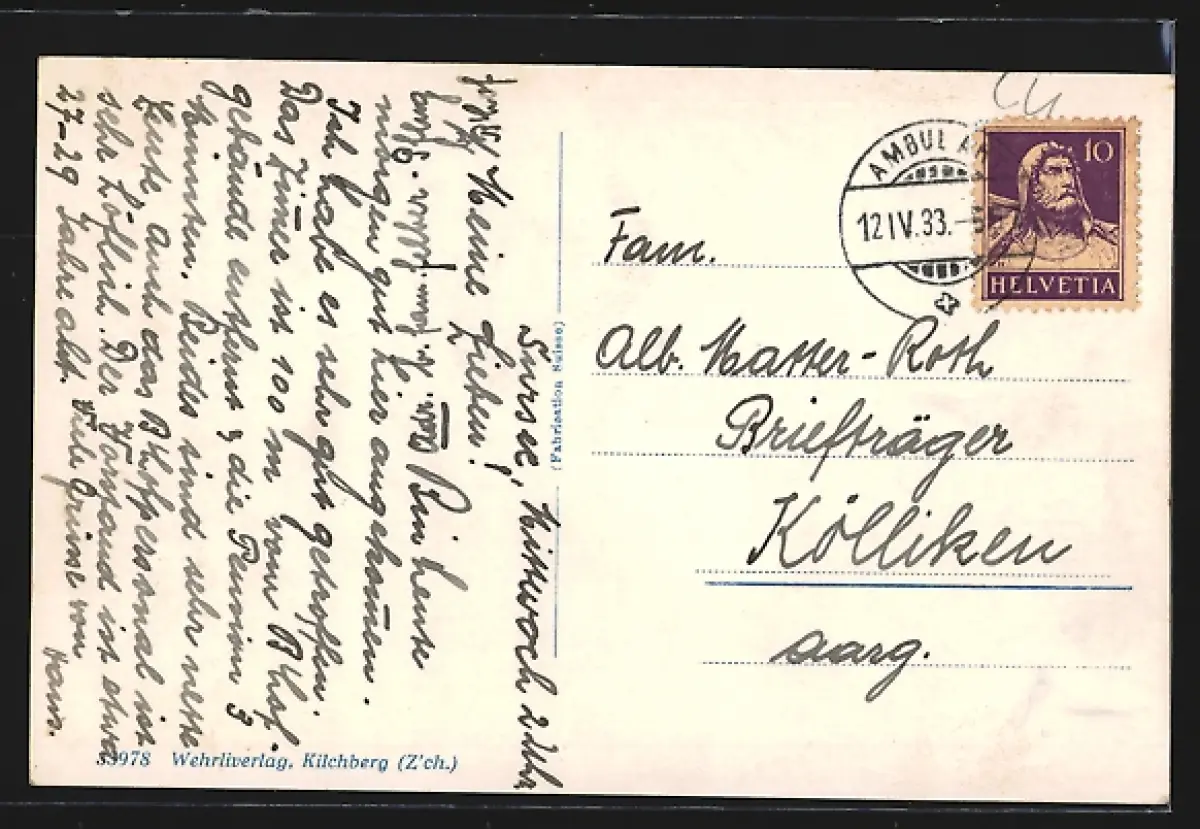 Sursee, Mittwoch 2 Uhr
Meine Lieben!
Bin heute
morgen gut hier angekommen.
Ich habe es sehr gut getroffen.
Das Zimmer ist 100 m vom Bhof-
gebäude entfernt & die Pension 3
Minuten. Beides sind sehr nette
Leute, auch das Bhofpersonal ist
sehr höflich. Der Vorstand ist etwa
27-29 Jahre alt. Viele Grüsse von
Hans.
Adr. b. Fam. Felber
(Fabrication Suisse)
33978 Wehrliverlag, Kilchberg (Z'ch.)
AMBULAN
12 IV.33.-
10
HELVETIA
Fam.
Alb. Matter-Roth
Briefträger
Kölliken
aarg.